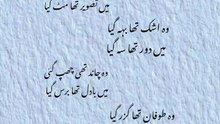 میں تصویر تھا مٹ گیا
وہ اشک تھا بہہ گیا
میں دور تھا سہہ گیا
وہ چاند تھی چھپ گئی
میں بادل تھا برس گیا
وہ طوفان تھا گزر گیا